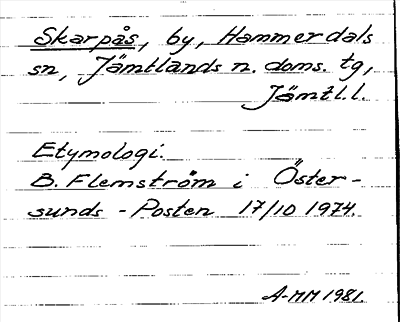 Skarpås, by, Hammerdals
sn, Jämtlands n. doms. tg,
Jämtl.l.
Etymologi.
B. Flemström i Öster-
sunds-Posten 17/10 1974.
A-MM 1981.